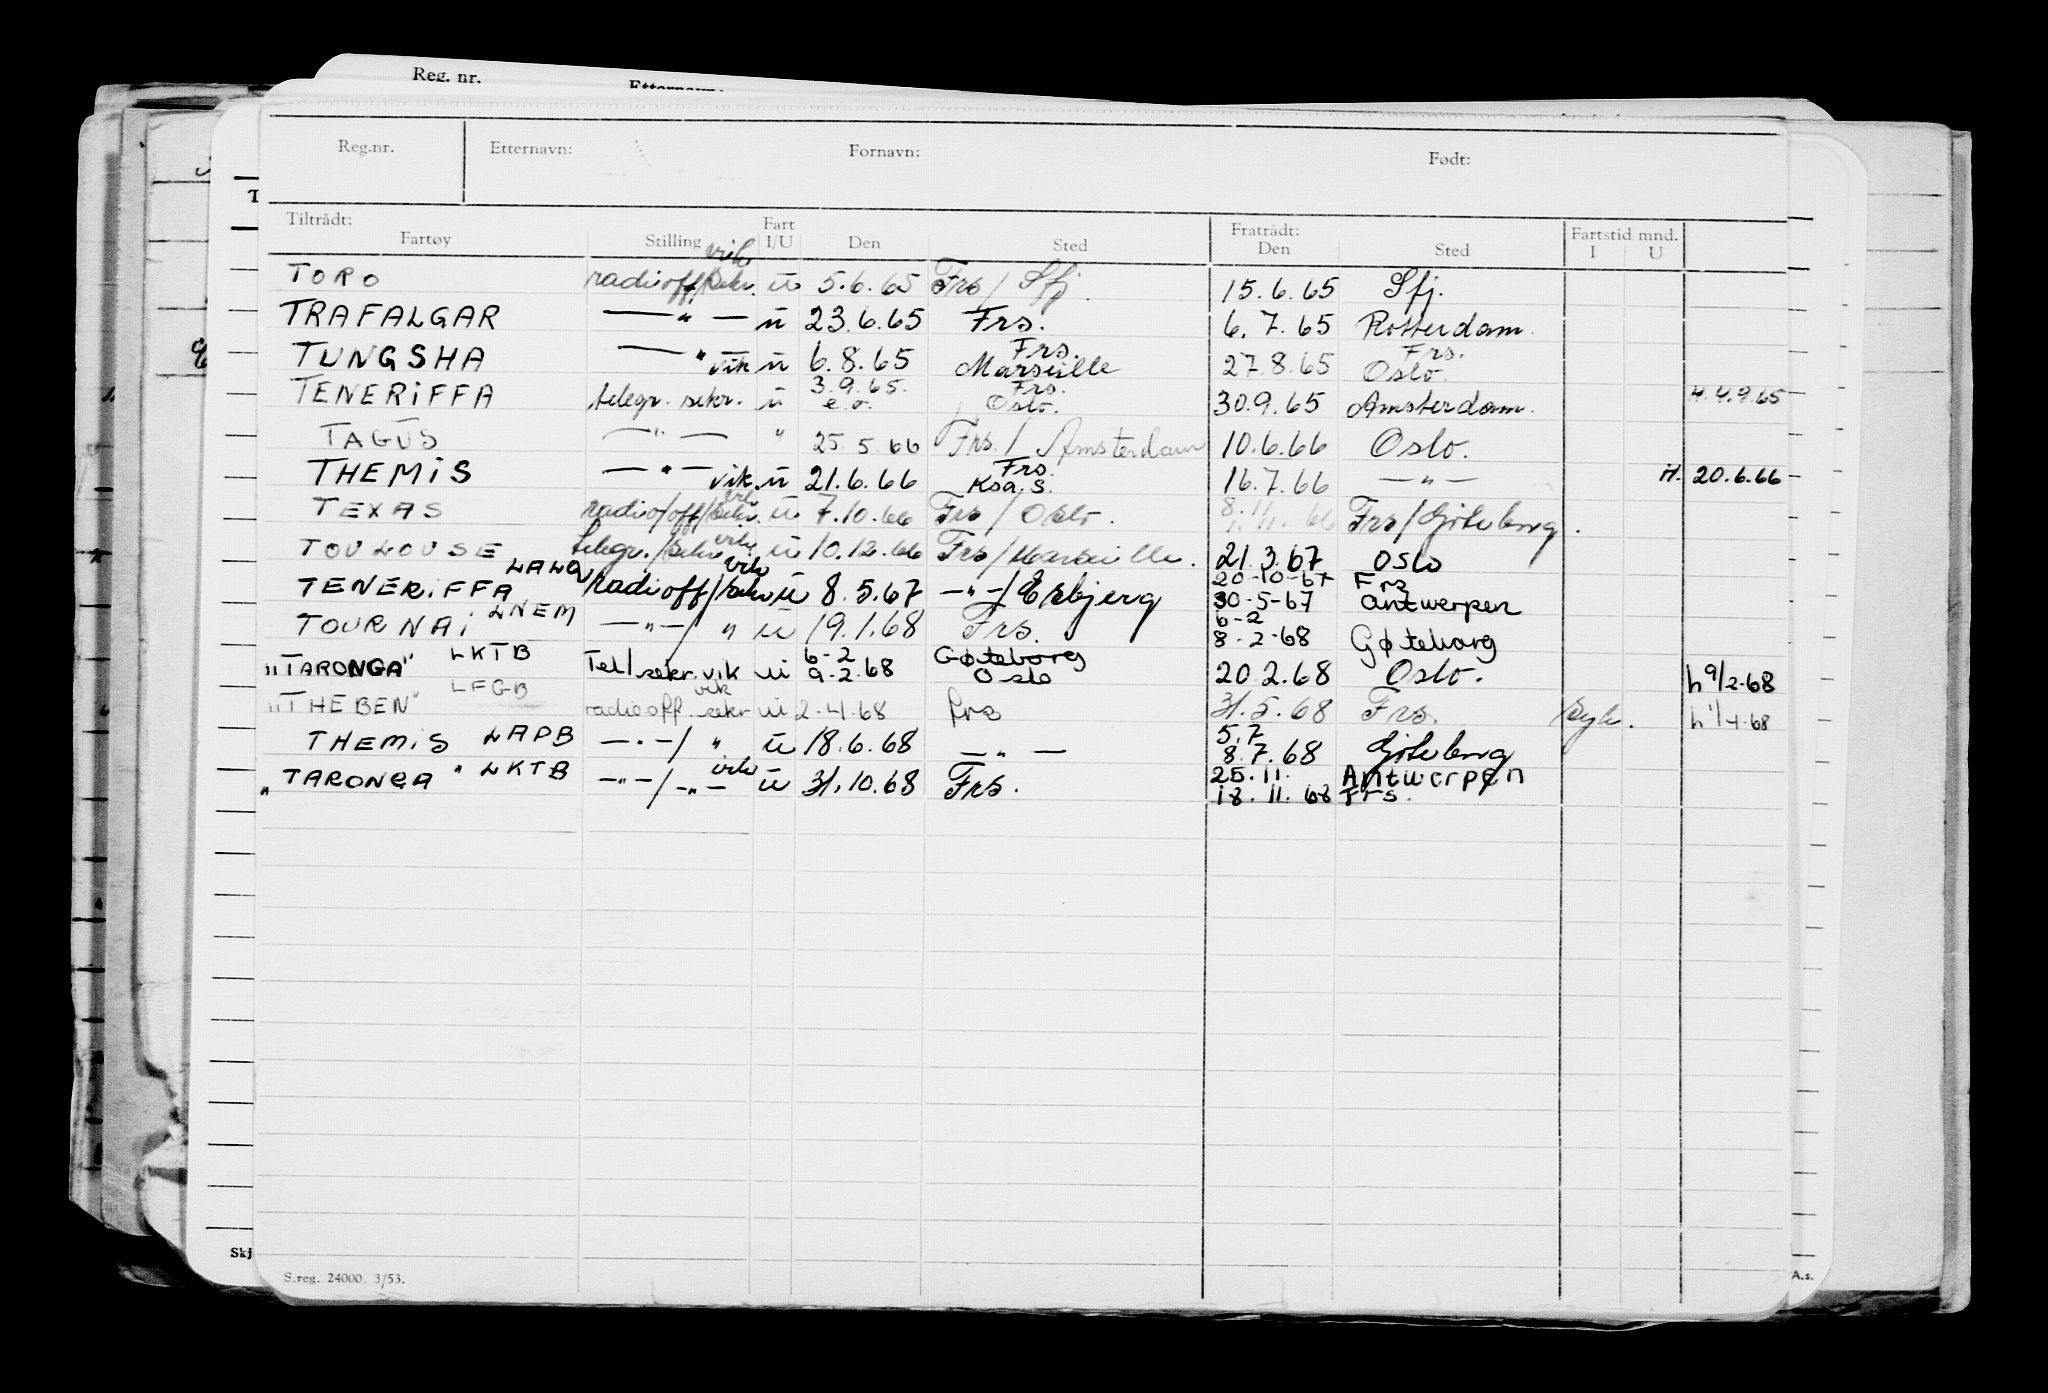 Reg. nr.
Etternavn:
Reg.nr. Etternavn: Fornavn: Født:
Tiltrådt: Fartøy Stilling Fart I/U Den Sted Fratrådt: Den Sted Fartstid mnd. I U
TORO radiooff/sekr. vik u 5.6.65 Frs / Sfj. 15.6.65 Sfj.
TRAFALGAR —"— u 23.6.65 Frs. 6.7.65 Rotterdam.
TUNGSHA —"— vik u 6.8.65 Frs. Marseille 27.8.65 Frs. Oslo.
TENERIFFA telegr. sekr. u 3.9.65. e.o. Frs. Oslo. 30.9.65 Amsterdam. 4.9.65
TAGUS —"— " 25.5.66 Frs. / Amsterdam 10.6.66 Oslo.
THEMIS —"— vik. u 21.6.66 Frs. Ksa. S. 16.7.66 —"— H. 20.6.66
TEXAS radio/off/sekr. vik u 7.10.66 Frs / Oslo. 8.11.66 Frs / Göteborg.
TOULOUSE telegr./sekr vik u 10.12.66 Frs / Marseille. 21.3.67 Oslo
TENERIFFA LALQ radiooff/sekr vik u 8.5.67 —"—/ Esbjerg 20-10-67 Frs 30-5-67 Antwerpen
TOURNAI LNEM —"—/ " u 19.1.68 Frs. 6-2 8-2-68 Gøteborg
"TARONGA" LKTB Tel/sekr. vik u 6-2 9-2-68 Gøteborg Oslo 20.2.68 Oslo. h 9/2-68
"THEBEN" LFGB radiooff. sekr vik u 2-4-68 frs 31.5.68 Frs. Syk. h 1/4-68
THEMIS LAPB —"—/ " u 18.6.68 —"— 5.7 8.7.68 Göteborg
"TARONGA" LKTB —"—/—"— vik u 31.10.68 Frs. 25.11. Antwerpen 18.11.68 Frs.
S.reg. 24000. 3/53.
Skj
A.s.